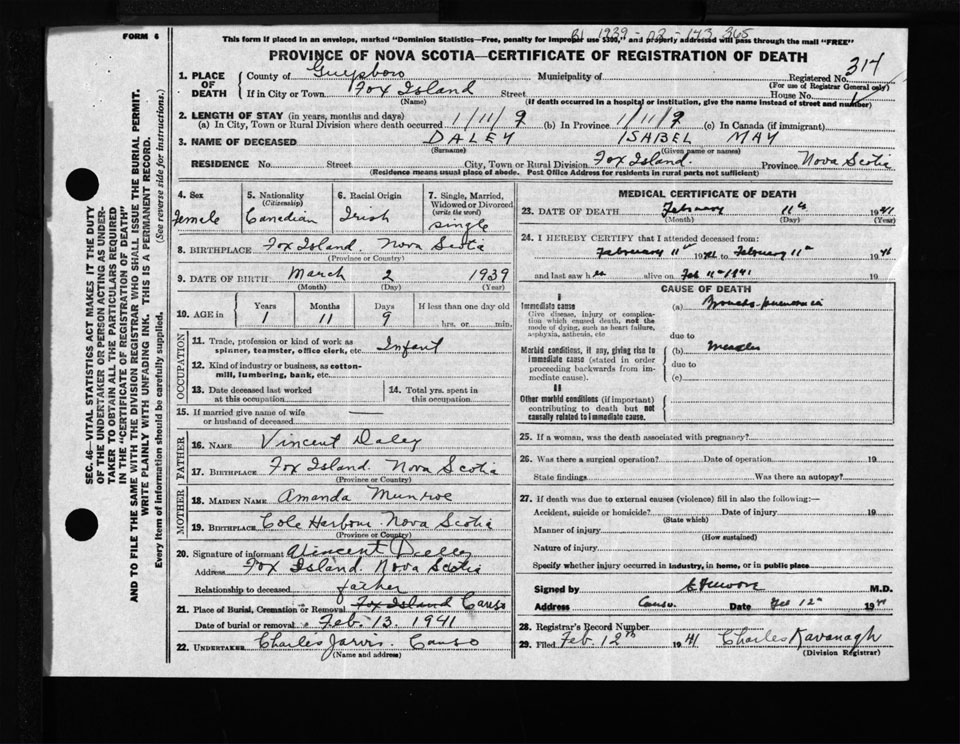 FORM 6
This form if placed in an envelope, marked "Dominion Statistics—Free, penalty for improper use $300," and properly addressed will pass through the mail "FREE"
1939-02-143 365
PROVINCE OF NOVA SCOTIA—CERTIFICATE OF REGISTRATION OF DEATH
314
1. PLACE OF DEATH County of Guysboro Municipality of Registered No.
(For use of Registrar General only)
If in City or Town Fox Island Street House No.
(Name) (If death occurred in a hospital or institution, give the name instead of street and number)
2. LENGTH OF STAY (in years, months and days)
(a) In City, Town or Rural Division where death occurred 1/11/9 (b) In Province 1/11/9 (c) In Canada (if immigrant)
3. NAME OF DECEASED DALEY ISABEL MAY
(Surname) (Given name or names)
RESIDENCE No. Street City, Town or Rural Division Fox Island. Province Nova Scotia
(Residence means usual place of abode. Post Office Address for residents in rural parts not sufficient)
SEC. 46—VITAL STATISTICS ACT MAKES IT THE DUTY
OF THE UNDERTAKER OR PERSON ACTING AS UNDER-
TAKER TO OBTAIN ALL THE PARTICULARS REQUIRED
IN THE "CERTIFICATE OF REGISTRATION OF DEATH"
AND TO FILE THE SAME WITH THE DIVISION REGISTRAR WHO SHALL ISSUE THE BURIAL PERMIT.
WRITE PLAINLY WITH UNFADING INK. THIS IS A PERMANENT RECORD.
Every item of information should be carefully supplied. (See reverse side for instructions.)
4. Sex
Female
5. Nationality
(Citizenship)
Canadian
6. Racial Origin
Irish
7. Single, Married,
Widowed or Divorced
(write the word)
single
8. BIRTHPLACE Fox Island, Nova Scotia
(Province or Country)
9. DATE OF BIRTH March 2 1939
(Month) (Day) (Year)
10. AGE in Years Months Days If less than one day old
1 11 9 hrs. or min.
OCCUPATION
11. Trade, profession or kind of work as
spinner, teamster, office clerk, etc. Infant
12. Kind of industry or business, as cotton-
mill, lumbering, bank, etc.
13. Date deceased last worked
at this occupation
14. Total yrs. spent in
this occupation
15. If married give name of wife
or husband of deceased —
FATHER
16. NAME Vincent Daley
17. BIRTHPLACE Fox Island Nova Scotia
MOTHER
18. MAIDEN NAME Amanda Munroe
19. BIRTHPLACE Cole Harbour Nova Scotia
(Province or Country)
20. Signature of informant Vincent Daley
Address Fox Island Nova Scotia
Relationship to deceased father
21. Place of Burial, Cremation or Removal Fox Island Canso
Date of burial or removal Feb. 13. 1941
22. UNDERTAKER Charles Jarvis. Canso
(Name and address)
MEDICAL CERTIFICATE OF DEATH
23. DATE OF DEATH February 11th 1941
(Month) (Day) (Year)
24. I HEREBY CERTIFY that I attended deceased from:
February 11th 1941 to February 11th 1941
and last saw h er alive on Feb 11th 1941 19
CAUSE OF DEATH
I
Immediate cause (a) Broncho-pneumonia
Give disease, injury or complica-
tion which caused death, not the
mode of dying, such as heart failure,
asphyxia, asthenia, etc due to
Morbid conditions, if any, giving rise to
immediate cause (stated in order
proceeding backwards from im-
mediate cause). (b) Measles
due to
(c)
II
Other morbid conditions (if important)
contributing to death but not
causally related to immediate cause.
25. If a woman, was the death associated with pregnancy?
26. Was there a surgical operation? Date of operation 19
State findings Was there an autopsy?
27. If death was due to external causes (violence) fill in also the following:—
Accident, suicide or homicide? Date of injury 19
(State which)
Manner of injury
(How sustained)
Nature of injury
Specify whether injury occurred in industry, in home, or in public place
Signed by M.D.
Address Canso. Date Feb 12th 1941
28. Registrar's Record Number
29. Filed Feb. 12th 1941 Charles Kavanagh
(Division Registrar)